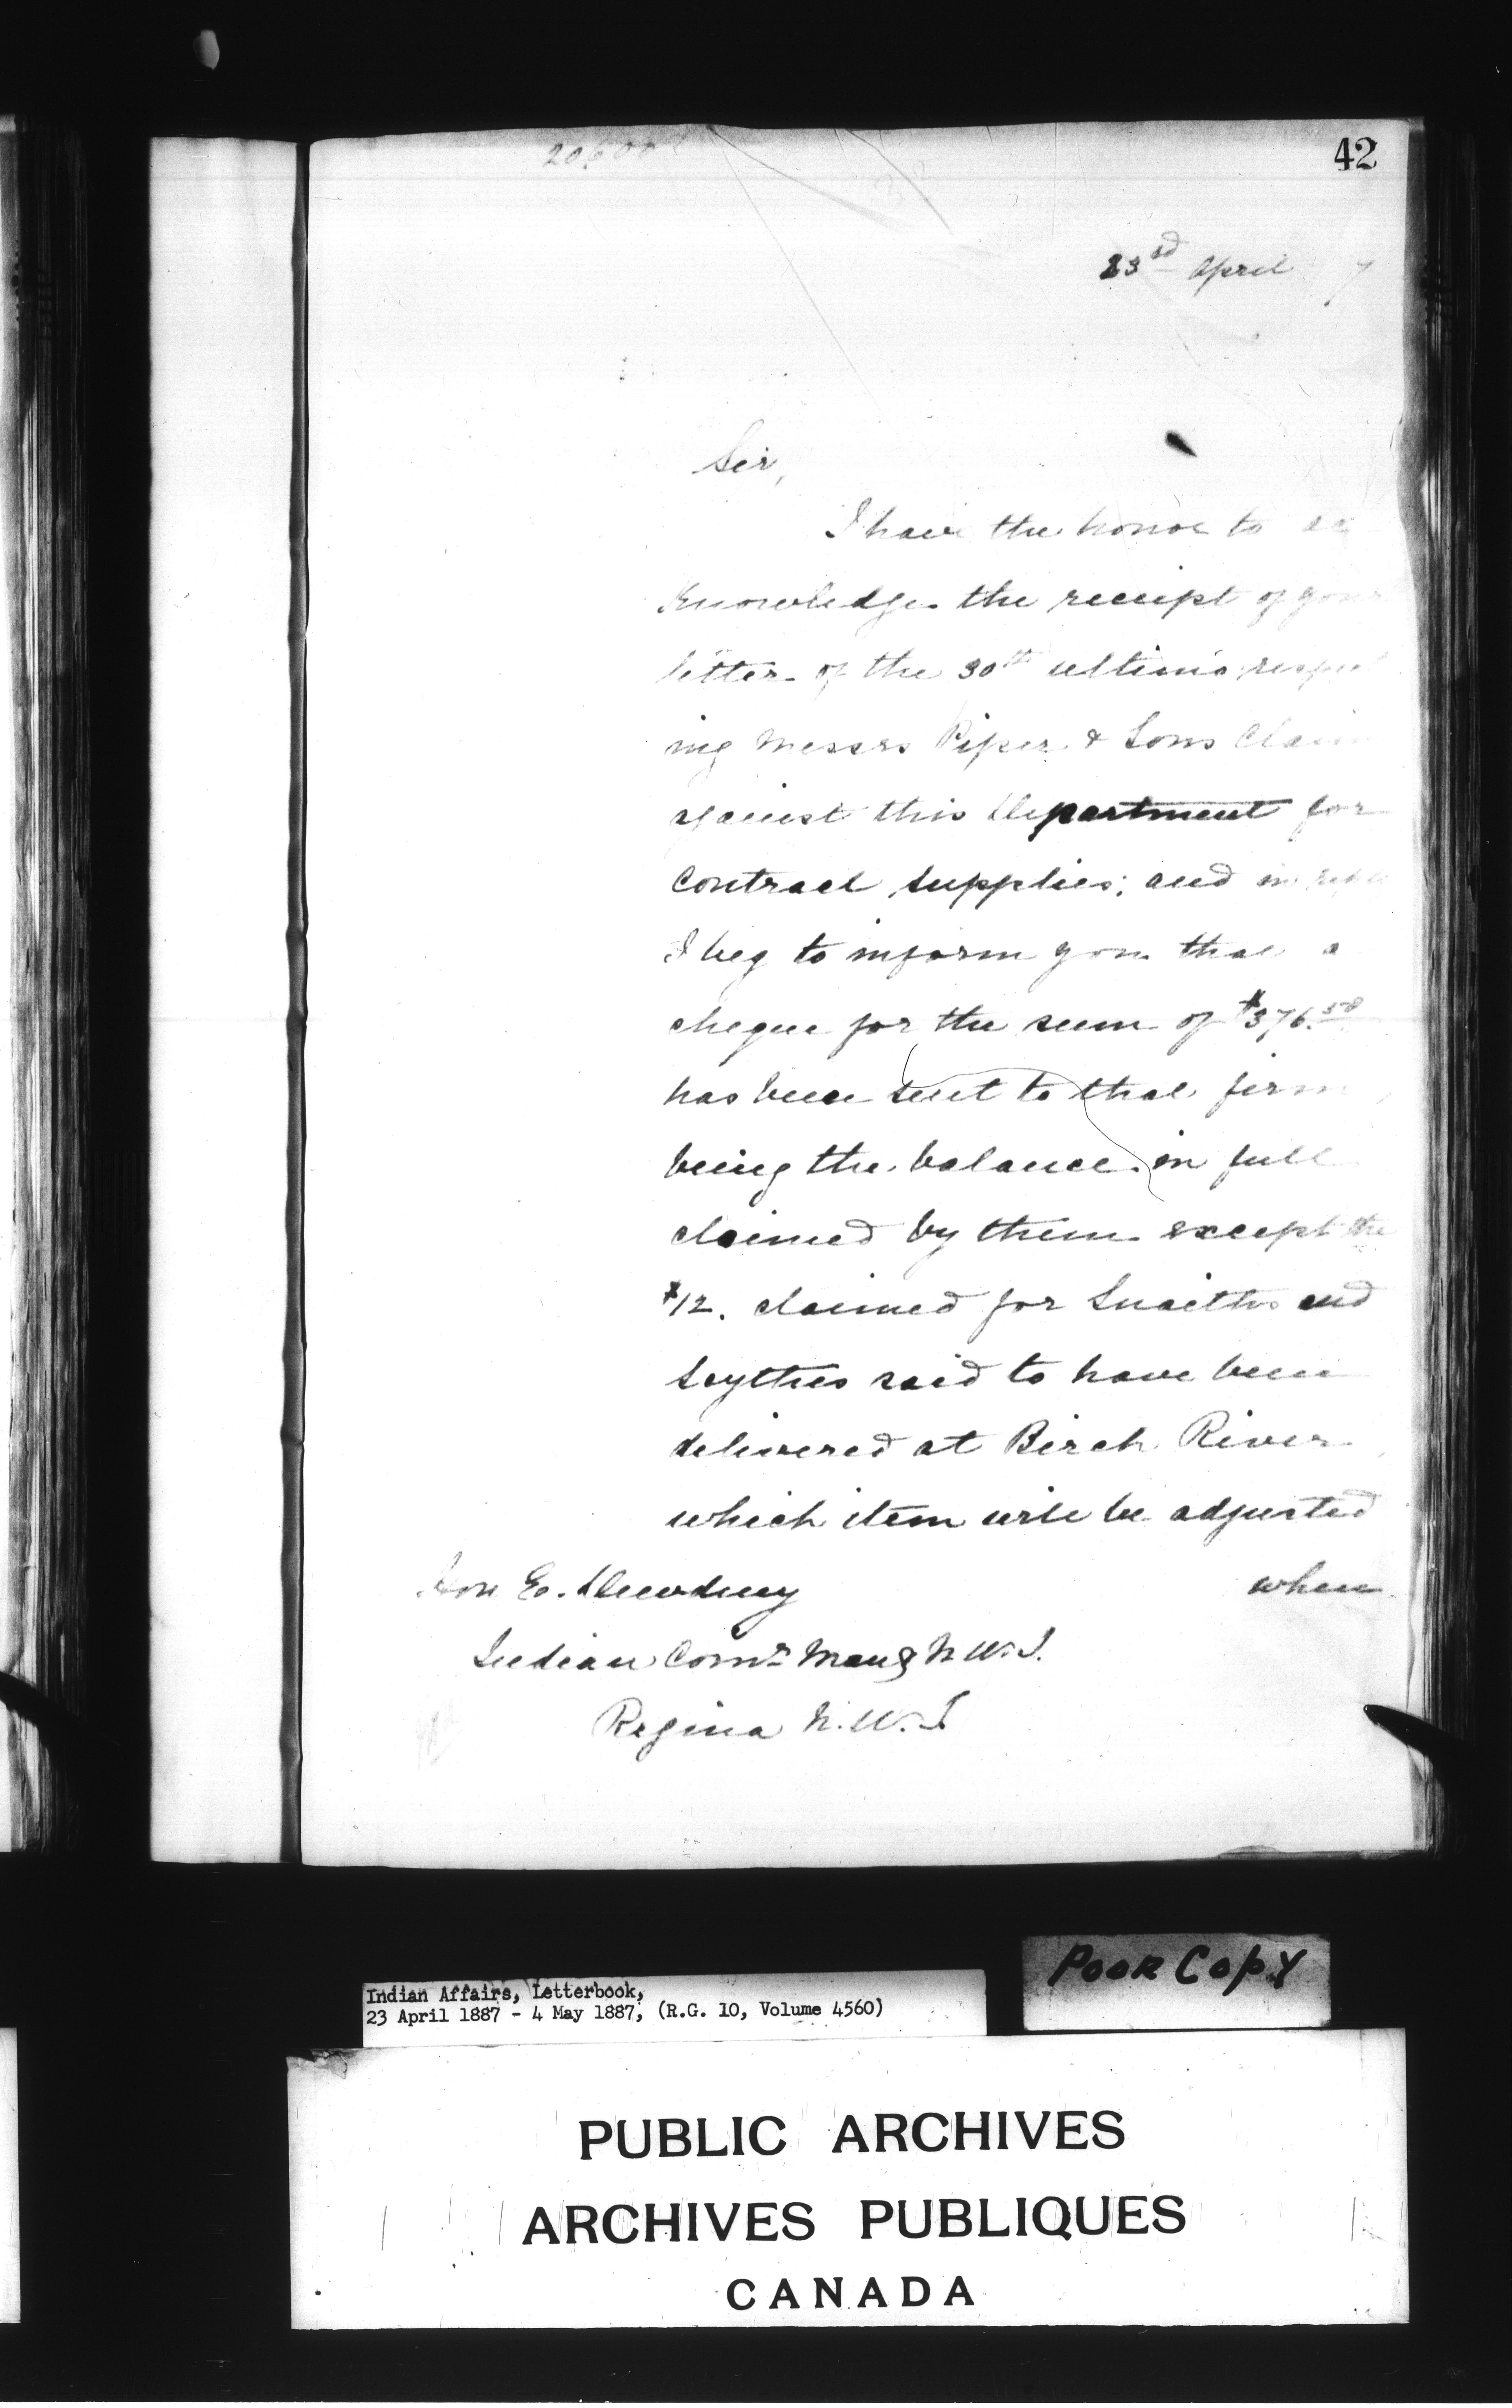 42
23rd April 7
Sir,
I have the honor to ac
knowledge the receipt of your
letter of the 30th ultimo respect
ing Messrs Piper & Sons Claim
against this Department for
contract supplies; and in reply
I beg to inform you that a
cheque for the sum of $376.50
has been sent to that firm,
being the balance in full
claimed by them except the
$12. claimed for Snaiths and
Scythes said to have been
delivered at Birch River,
which item will be adjusted
when
Hon E. Dewdney
Indian Comr Man & N.W.T.
Regina N.W.T
Poor Copy
Indian Affairs, Letterbook,
23 April 1887 - 4 May 1887, (R.G. 10, Volume 4560)
PUBLIC ARCHIVES
ARCHIVES PUBLIQUES
CANADA